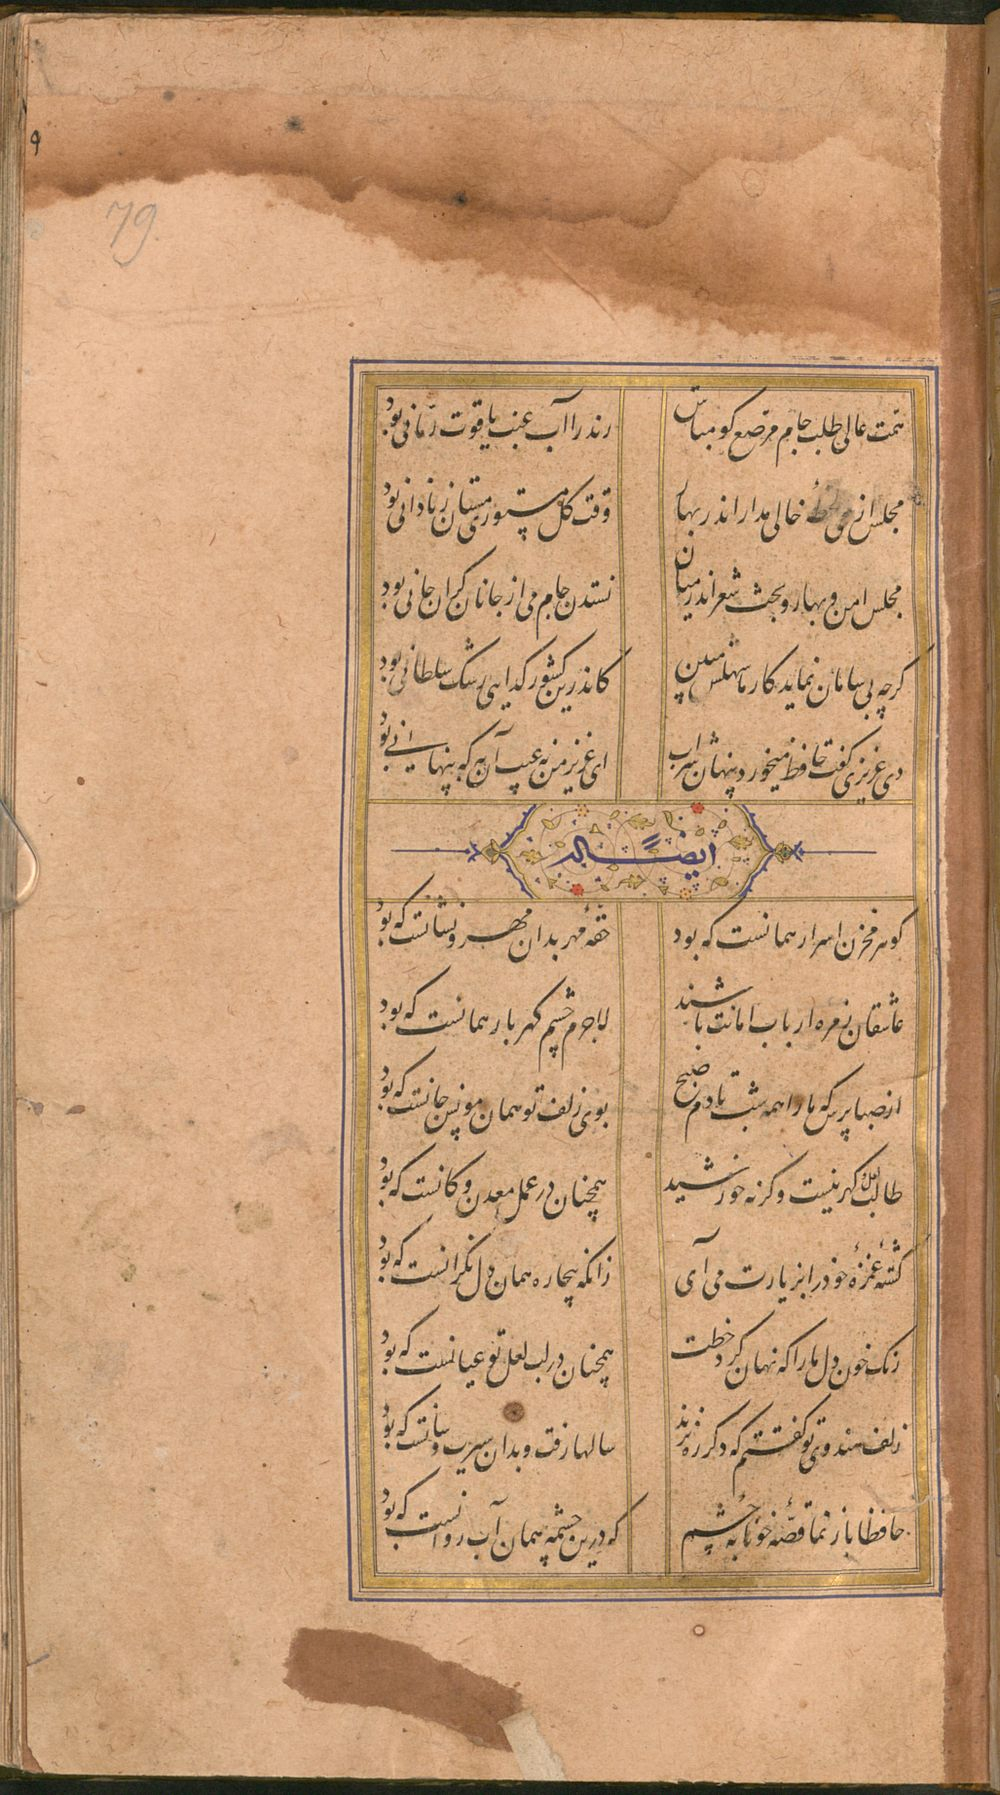 ۹
79
همت عالی طلب جام مرصع گو مباش رند را آب عنب یاقوت رمانی بود
مجلس از خالی مدار اندر بهار وقت گل مستوری مستان ز نادانی بود
مجلس امن و بهار و بحث شعر اندر میان نستدن جام می از جانان گران جانی بود
گرچه بی سامان نماید کار ما سهلش مبین کاندرین کشور گدایی رشک سلطانی بود
دی عزیزی گفت حافظ میخورد پنهان شراب ای عزیز من نه عیب آن به که پنهانی بود
ایضاً له
گوهر مخزن اسرار همانست که بود حقهٔ مهر بدان مهر و نشانست که بود
عاشقان زمره ارباب امانت باشند لاجرم چشم گهربار همانست که بود
از صبا پرس که ما را همه شب تا دم صبح بوی زلف تو همان مونس جانست که بود
طالب لعل و گهر نیست وگرنه خورشید همچنان در عمل معدن و کانست که بود
کشتهٔ غمزهٔ خود را بزیارت می آی زانکه بیچاره همان دل نگرانست که بود
رنگ خون دل ما را که نهان کرد خطت همچنان در لب لعل تو عیانست که بود
زلف هندوی تو گفتم که دگر ره نزند سالها رفت و بدان سیرت و سانست که بود
حافظا باز نما قصهٔ خونابهٔ چشم که درین چشمه همان آب روانست که بود